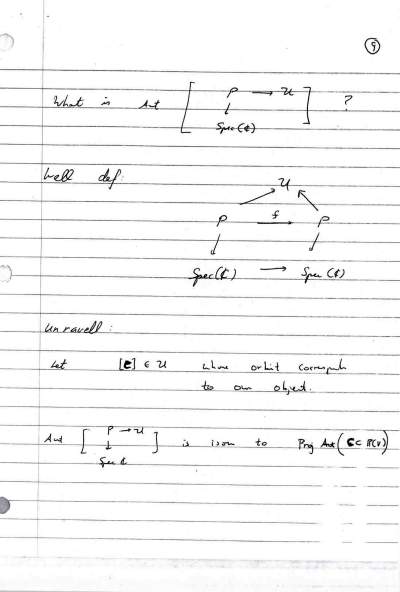 9
What is Aut [ P → U ] ?
↓
Spec(ℂ)
Well def:
U
P f→ P
↓ ↓
Spec(ℂ) → Spec(ℂ)
unravell:
Let [C] ∈ U whose orbit corresponds
to our object.
Aut [ P → U ] is isom to Proj Aut(C ⊂ ℙ(V))
↓
Spec ℂ